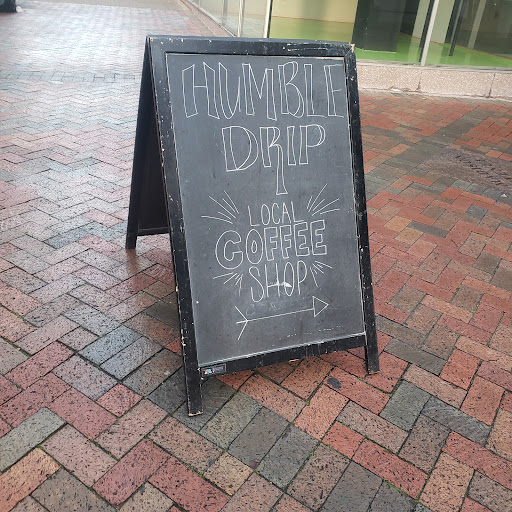 HUMBLE
DRIP
LOCAL
COFFEE
SHOP